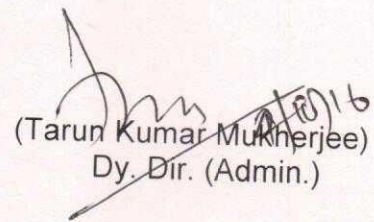 (Tarun Kumar Mukherjee)
Dy. Dir. (Admin.)